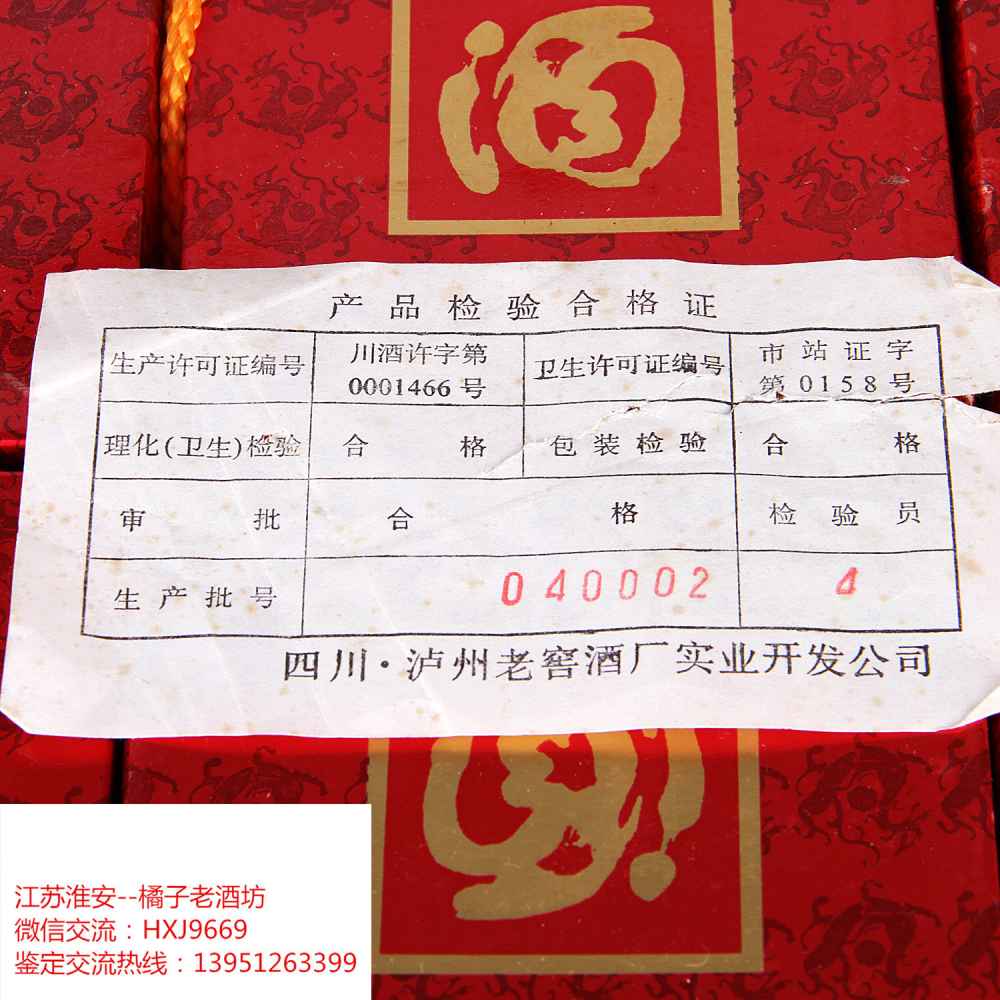 酒
产品检验合格证
生产许可证编号 川酒许字第0001466号 卫生许可证编号 市站证字第0158号
理化(卫生)检验 合格 包装检验 合格
审批 合格 检验员
生产批号 040002 4
四川·泸州老窖酒厂实业开发公司
酒
江苏淮安--橘子老酒坊
微信交流：HXJ9669
鉴定交流热线：13951263399